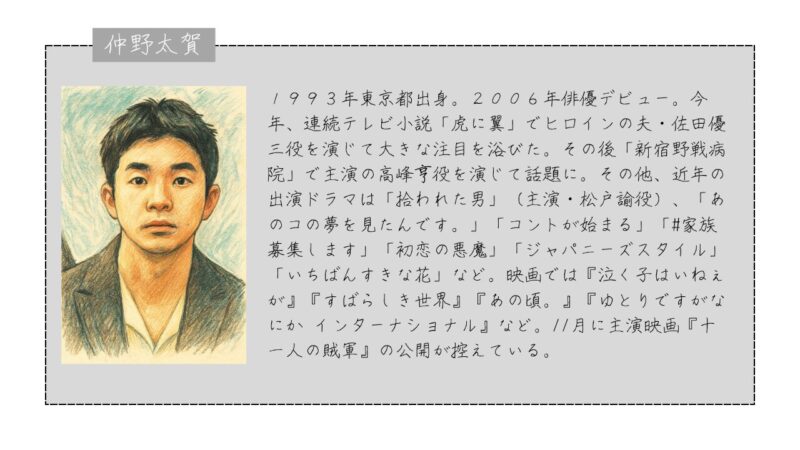 仲野太賀
１９９３年東京都出身。２００６年俳優デビュー。今
年、連続テレビ小説「虎に翼」でヒロインの夫・佐田優
三役を演じて大きな注目を浴びた。その後「新宿野戦病
院」で主演の高峰亨役を演じて話題に。その他、近年の
出演ドラマは「拾われた男」（主演・松戸諭役）、「あ
のコの夢を見たんです。」「コントが始まる」「#家族
募集します」「初恋の悪魔」「ジャパニーズスタイル」
「いちばんすきな花」など。映画では『泣く子はいねぇ
が』『すばらしき世界』『あの頃。』『ゆとりですがな
にか インターナショナル』など。11月に主演映画『十
一人の賊軍』の公開が控えている。